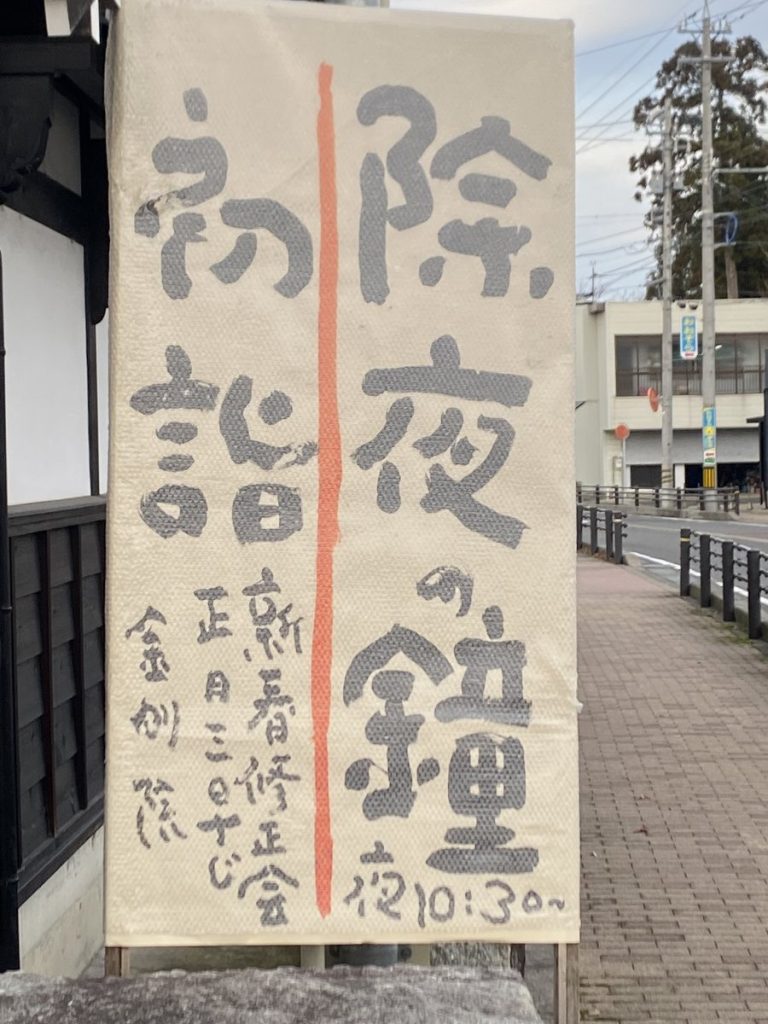 除夜の鐘
夜10:30~
初詣
新春修正会
正月三日十じ
金剛院